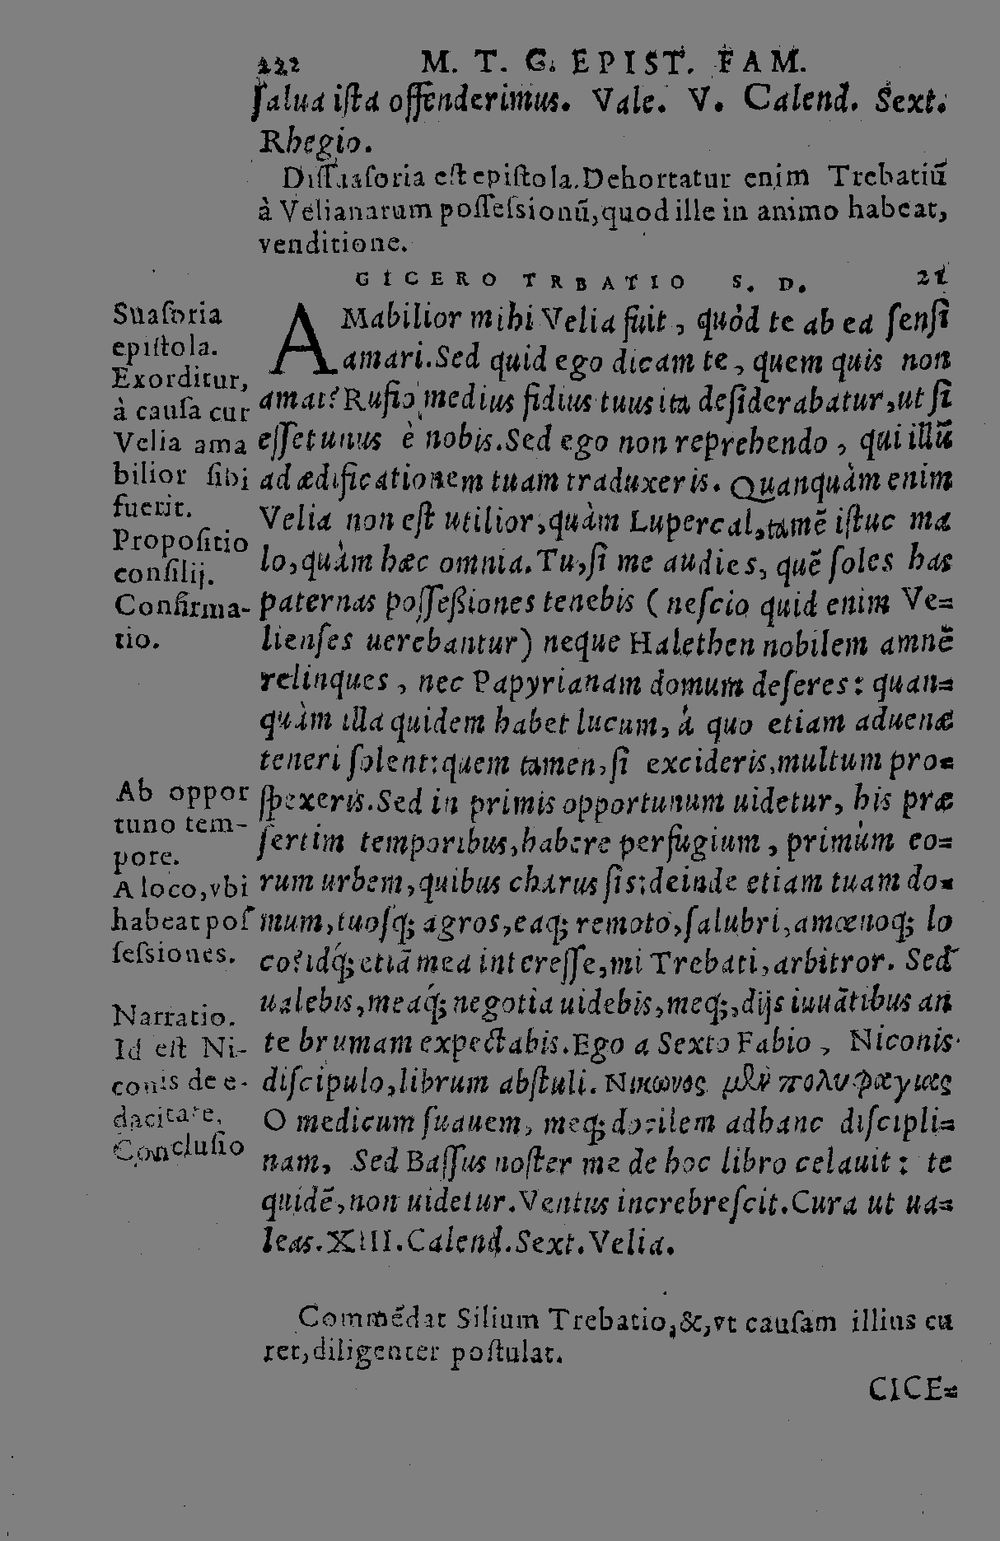 222 M. T. C. EPIST. FAM.
ſalua iſta offenderimus. Vale. V. Calend. Sext.
Rhegio.
Diſſuaſoria eſt epiſtola. Dehortatur enim Trebatiū
à Velianarum poſſeſsionū, quod ille in animo habeat,
venditione.
CICERO TRBATIO S. D. 21
AMabilior mihi Velia fuit, quòd te ab ea ſenſi
amari. Sed quid ego dicam te, quem quis non
amat? Rufio medius fidius tuus ita deſiderabatur, ut ſi
eſſet unus è nobis. Sed ego non reprehendo, qui illū
ad ædificationem tuam traduxeris. Quanquàm enim
Velia non eſt utilior, quàm Lupercal, tamē iſtuc ma
lo, quàm hæc omnia. Tu, ſi me audies, quē ſoles has
paternas poſſeßiones tenebis (neſcio quid enim Ve=
lienſes uerebantur) neque Halethen nobilem amnē
relinques, nec Papyrianam domum deſeres: quan=
quàm illa quidem habet lucum, à quo etiam aduenæ
teneri ſolent: quem tamen, ſi excideris, multum pro=
ſpexeris. Sed in primis opportunum uidetur, his præ
ſertim temporibus, habere perfugium, primùm eo=
rum urbem, quibus charus ſis: deinde etiam tuam do=
mum, tuoſq; agros, eaq; remoto, ſalubri, amœnoq; lo
co: idq́; etiā mea intereſſe, mi Trebati, arbitror. Sed
ualebis, meaq́; negotia uidebis, meq;, dijs iuuātibus an
te brumam expectabis. Ego a Sexto Fabio, Niconis
diſcipulo, librum abſtuli. Νικωνος μὲν πολυφαγιας
O medicum ſuauem, meq; docilem adhanc diſcipli=
nam, Sed Baſſus noſter me de hoc libro celauit: te
quidē, non uidetur. Ventus increbreſcit. Cura ut ua=
leas. XIII. Calend. Sext. Velia.
Suaſoria
epiſtola.
Exorditur,
à cauſa cur
Velia ama
bilior ſibi
fuerit.
Propoſitio
conſilij.
Confirma-
tio.
Ab oppor
tuno tem-
pore.
A loco, vbi
habeat poſ
ſeſsiones.
Narratio.
Id eſt Ni-
conis de e-
dacitate.
Concluſio
Commēdat Silium Trebatio, &, vt cauſam illius cu
ret, diligenter poſtulat.
CICE=